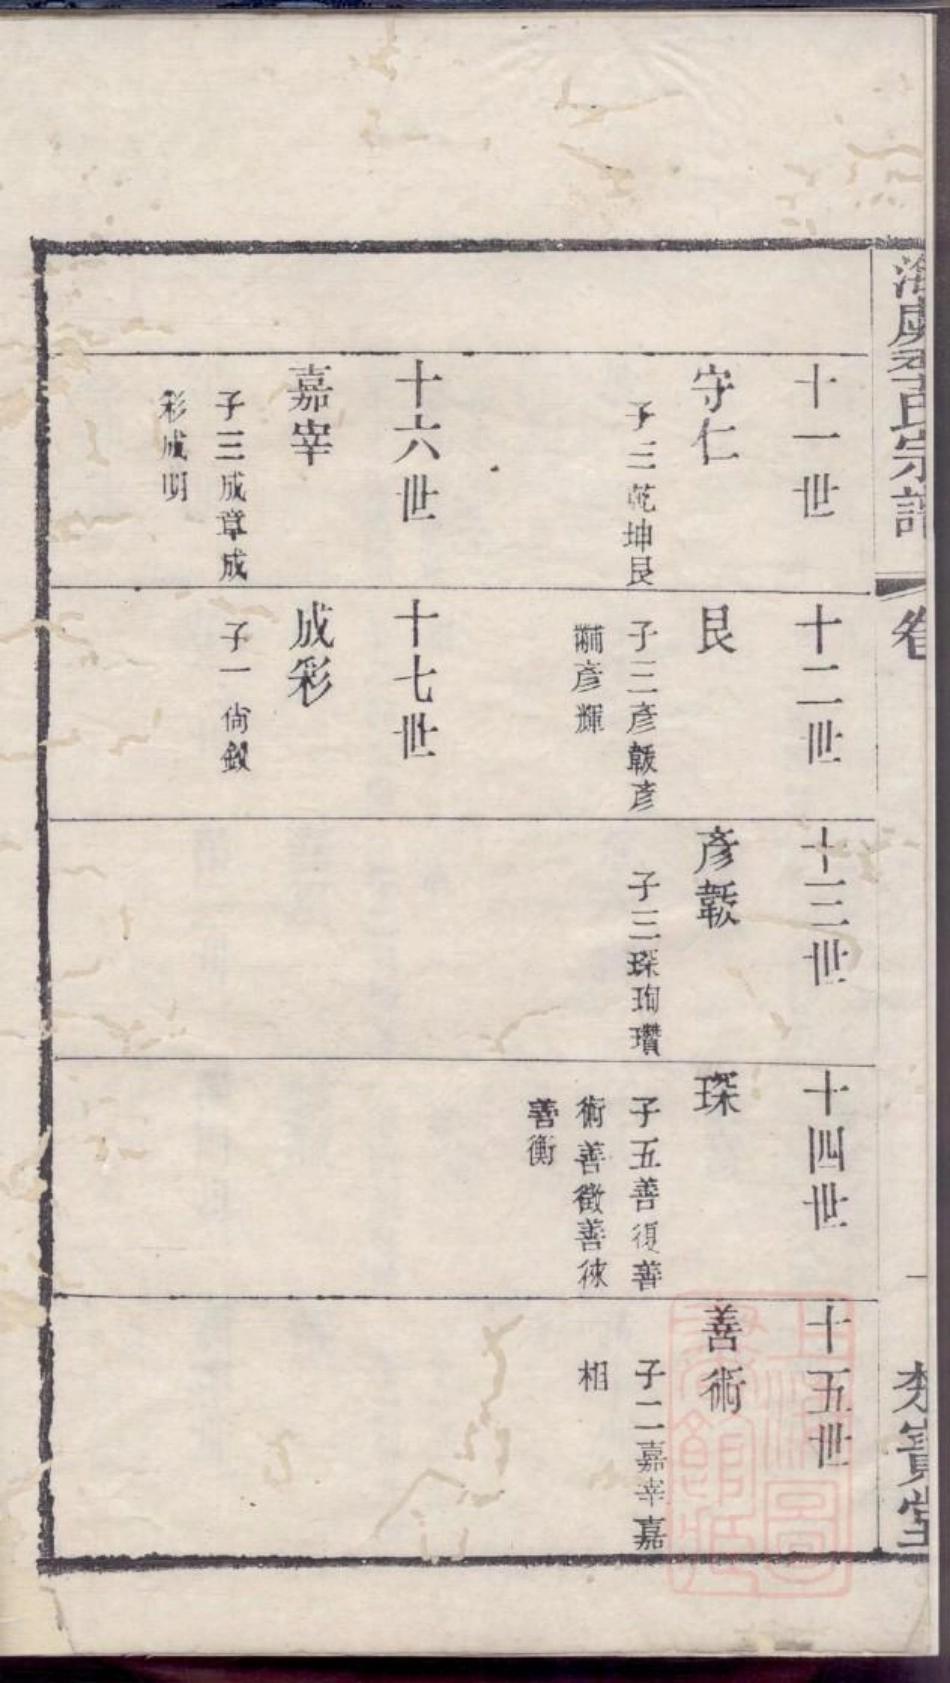 十一世
守仁
子三乾坤艮
十二世
艮
子三彥韍彥
黼彥輝
十三世
彥韍
子三琛珣瓚
十四世
琛
子五善復善
術善徵善徠
善衡
十五世
善術
子二嘉宰嘉
相
十六世
嘉宰
子三成章成
彩成明
十七世
成彩
子一尙
氏宗譜
卷
寶堂